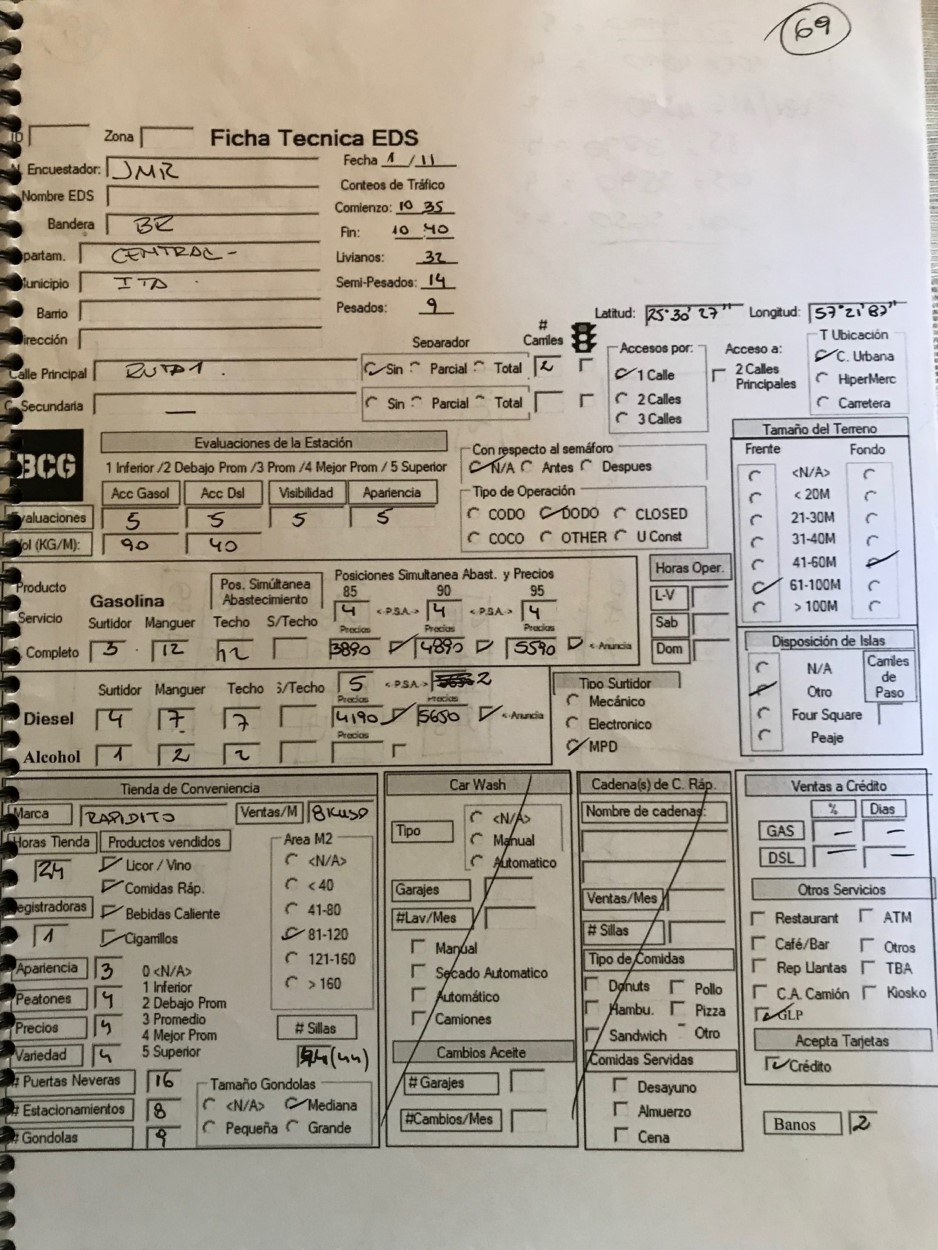 69
ID Zona Ficha Tecnica EDS
Encuestador: JMR Fecha 1/11
Nombre EDS Conteos de Tráfico
Bandera BR Comienzo: 10 35
Fin: 10 40
partam. CENTRAL - Livianos: 32
Municipio ITA Semi-Pesados: 14
Barrio Pesados: 9
Latitud: 25°30'27" Longitud: 57°21'87"
Dirección
Separador # Carriles Accesos por: Acceso a: T Ubicación
Calle Principal RUTA 1. Sin Parcial Total 2 1 Calle 2 Calles Principales C. Urbana
2 Calles HiperMerc
Secundaria — Sin Parcial Total 3 Calles Carretera
BCG
Evaluaciones de la Estación
1 Inferior /2 Debajo Prom /3 Prom /4 Mejor Prom / 5 Superior
Acc Gasol Acc Dsl Visibilidad Apariencia
Evaluaciones 5 5 5 5
Vol (KG/M): 90 40
Con respecto al semáforo
N/A Antes Despues
Tipo de Operación
CODO DODO CLOSED
COCO OTHER U Const
Tamaño del Terreno
Frente Fondo
<N/A>
< 20M
21-30M
31-40M
41-60M
61-100M
> 100M
Producto Servicio
Gasolina
Pos. Simúltanea Abastecimiento
Posiciones Simultanea Abast. y Precios
85 90 95
4 <P.S.A.> 4 <P.S.A.> 4
Surtidor Manguer Techo S/Techo Precios Precios Precios
Completo 3 12 12 3890 4890 5590 <-Anuncia
Horas Oper.
L-V
Sab
Dom
Surtidor Manguer Techo S/Techo 5 <P.S.A.> 2
Precios Precios
Diesel 4 7 7 4190 5650 <-Anuncia
Precios
Alcohol 1 2 2
Tipo Surtidor
Mecánico
Electronico
MPD
Disposición de Islas
N/A Carriles de Paso
Otro
Four Square
Peaje
Tienda de Conveniencia
Marca RAPIDITO Ventas/M 8KUSD
Horas Tienda Productos vendidos Area M2
24 Licor / Vino <N/A>
Comidas Ráp. < 40
Registradoras Bebidas Caliente 41-80
1 Cigarrillos 81-120
Apariencia 3 0 <N/A> 121-160
1 Inferior > 160
Peatones 4 2 Debajo Prom
Precios 4 3 Promedio # Sillas
4 Mejor Prom
Variedad 4 5 Superior (44)
# Puertas Neveras 16 Tamaño Gondolas
# Estacionamientos 8 <N/A> Mediana
# Gondolas 9 Pequeña Grande
Car Wash
Tipo <N/A>
Manual
Automatico
Garajes
#Lav/Mes
Manual
Secado Automatico
Automático
Camiones
Cambios Aceite
# Garajes
#Cambios/Mes
Cadena(s) de C. Ráp.
Nombre de cadenas:
Ventas/Mes
# Sillas
Tipo de Comidas
Donuts Pollo
Hambu. Pizza
Sandwich Otro
Comidas Servidas
Desayuno
Almuerzo
Cena
Ventas a Crédito
% Dias
GAS — —
DSL — —
Otros Servicios
Restaurant ATM
Café/Bar Otros
Rep Llantas TBA
C.A. Camión Kiosko
GLP
Acepta Tarjetas
Crédito
Banos 2